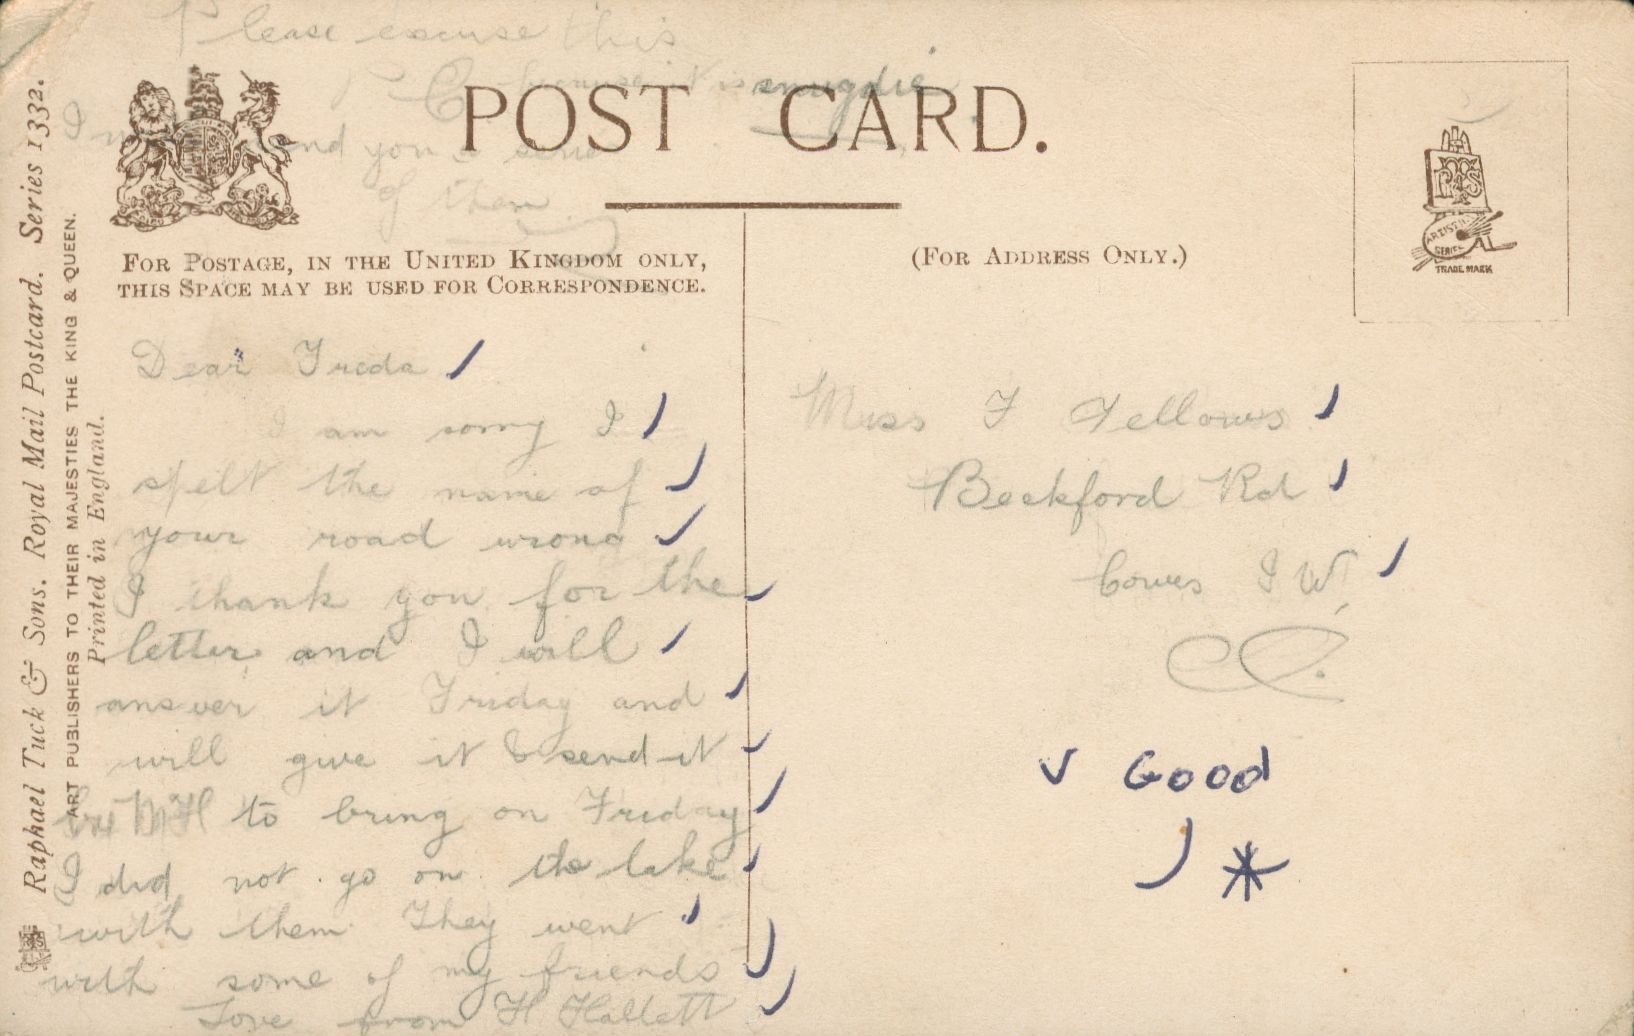 Please excuse this
P C because it is smugdie
I  send you a
of them
POST CARD.
FOR POSTAGE, IN THE UNITED KINGDOM ONLY,
THIS SPACE MAY BE USED FOR CORRESPONDENCE.
(FOR ADDRESS ONLY.)
ARTISTIC SERIES
TRADE MARK
Raphael Tuck & Sons. Royal Mail Postcard. Series 1332.
ART PUBLISHERS TO THEIR MAJESTIES THE KING & QUEEN.
Printed in England.
Dear Freda
I am sorry I
spelt the name of
your road wrong
I thank you for the
letter and I will
answer it Friday and
will give it & send it
to bring on Friday
I did not go on the lake
with them They went
with some of my friends
Love from H Hallett
Miss F Fellows
Beckford Rd
Cowes I W
Good